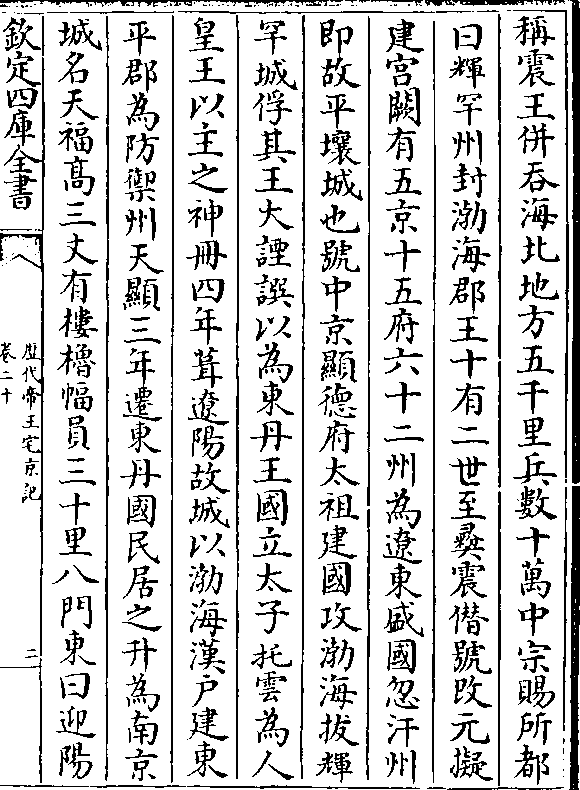 稱震王併吞海北地方五千里兵數十萬中宗賜所都
曰輝罕州封渤海郡王十有二世至彛震僣號改元擬
建宫闕有五京十五府六十二州為遼東盛國忽汗州
即故平壤城也號中京顯德府太祖建國攻渤海拔輝
罕城俘其王大諲譔以為東丹王國立太子托雲為人
皇王以主之神冊四年葺遼陽故城以渤海漢户建東
平郡為防禦州天顯三年遷東丹國民居之升為南京
城名天福髙三丈有樓櫓幅員三十里八門東曰迎陽
欽定四庫全書
歷代帝王宅京記
卷二十
二